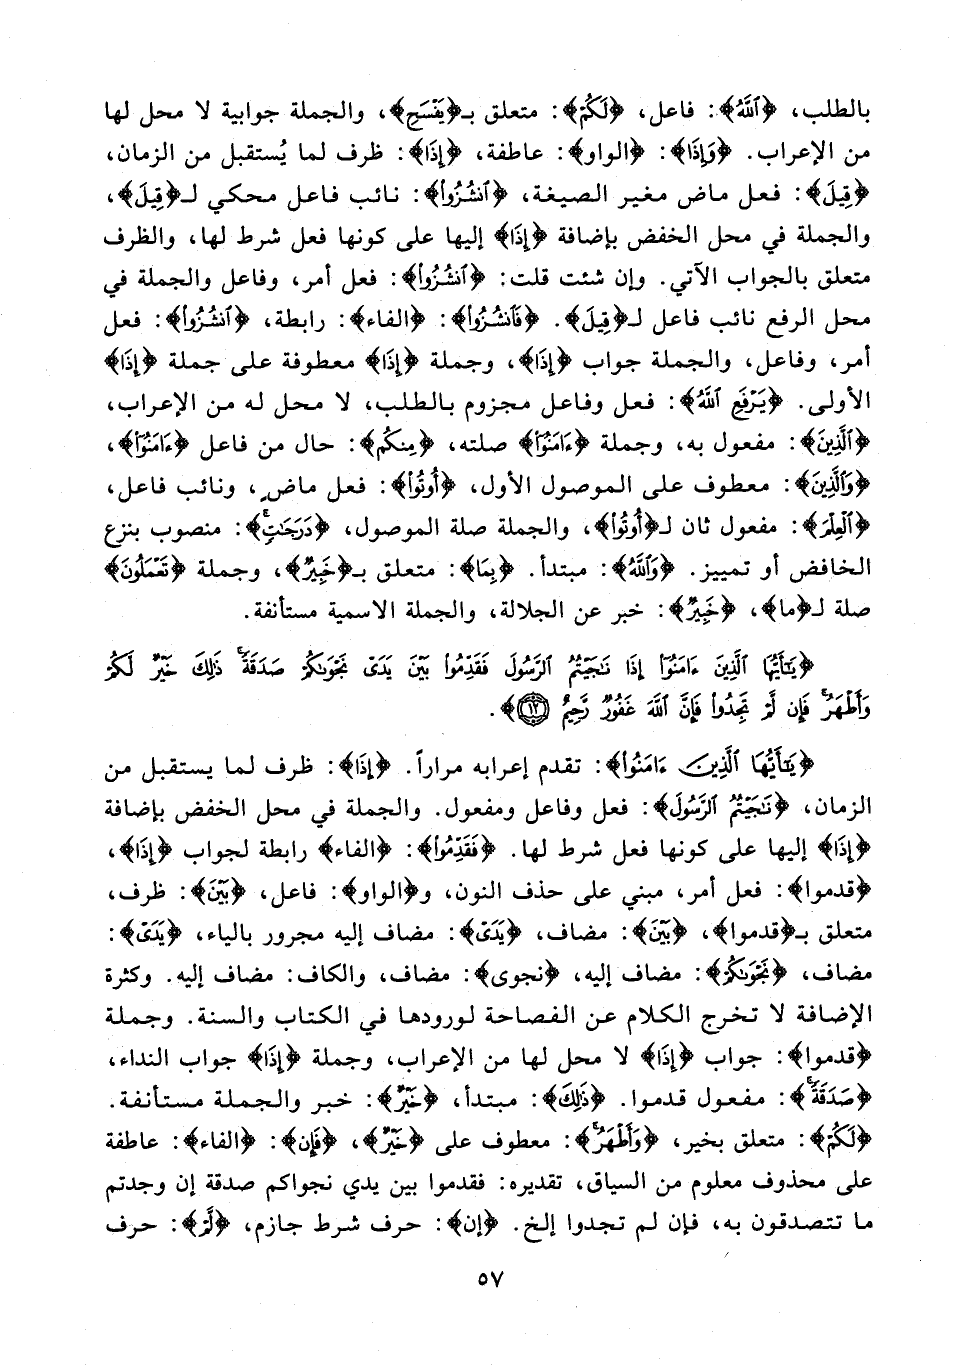 بالطلب، ﴿ٱللَّهُ﴾: فاعل، ﴿لَكُمْ﴾: متعلق بـ﴿يَفْسَحِ﴾، والجملة جوابية لا محل لها
من الإعراب. ﴿وَإِذَا﴾: ﴿الواو﴾: عاطفة، ﴿إِذَا﴾: ظرف لما يُستقبل من الزمان،
﴿قِيلَ﴾: فعل ماض مغير الصيغة، ﴿ٱنشُزُوا۟﴾: نائب فاعل محكي لـ﴿قِيلَ﴾،
والجملة في محل الخفض بإضافة ﴿إِذَا﴾ إليها على كونها فعل شرط لها، والظرف
متعلق بالجواب الآتي. وإن شئت قلت: ﴿ٱنشُزُوا۟﴾: فعل أمر، وفاعل والجملة في
محل الرفع نائب فاعل لـ﴿قِيلَ﴾. ﴿فَٱنشُزُوا۟﴾: ﴿الفاء﴾: رابطة، ﴿ٱنشُزُوا۟﴾: فعل
أمر، وفاعل، والجملة جواب ﴿إِذَا﴾، وجملة ﴿إِذَا﴾ معطوفة على جملة ﴿إِذَا﴾
الأولى. ﴿يَرْفَعِ ٱللَّهُ﴾: فعل وفاعل مجزوم بالطلب، لا محل له من الإعراب،
﴿ٱلَّذِينَ﴾: مفعول به، وجملة ﴿ءَامَنُوا۟﴾ صلته، ﴿مِنكُمْ﴾: حال من فاعل ﴿ءَامَنُوا۟﴾،
﴿وَٱلَّذِينَ﴾: معطوف على الموصول الأول، ﴿أُوتُوا۟﴾: فعل ماضٍ، ونائب فاعل،
﴿ٱلْعِلْمَ﴾: مفعول ثان لـ﴿أُوتُوا۟﴾، والجملة صلة الموصول، ﴿دَرَجَٰتٍۚ﴾: منصوب بنزع
الخافض أو تمييز. ﴿وَٱللَّهُ﴾: مبتدأ. ﴿بِمَا﴾: متعلق بـ﴿خَبِيرٌ﴾، وجملة ﴿تَعْمَلُونَ﴾
صلة لـ﴿ما﴾، ﴿خَبِيرٌ﴾: خبر عن الجلالة، والجملة الاسمية مستأنفة.
﴿يَٰٓأَيُّهَا ٱلَّذِينَ ءَامَنُوٓا۟ إِذَا نَٰجَيْتُمُ ٱلرَّسُولَ فَقَدِّمُوا۟ بَيْنَ يَدَىْ نَجْوَىٰكُمْ صَدَقَةًۚ ذَٰلِكَ خَيْرٌ لَّكُمْ
وَأَطْهَرُۚ فَإِن لَّمْ تَجِدُوا۟ فَإِنَّ ٱللَّهَ غَفُورٌ رَّحِيمٌ ﴿١٢﴾﴾.
﴿يَٰٓأَيُّهَا ٱلَّذِينَ ءَامَنُوٓا۟﴾: تقدم إعرابه مراراً. ﴿إِذَا﴾: ظرف لما يستقبل من
الزمان، ﴿نَٰجَيْتُمُ ٱلرَّسُولَ﴾: فعل وفاعل ومفعول. والجملة في محل الخفض بإضافة
﴿إِذَا﴾ إليها على كونها فعل شرط لها. ﴿فَقَدِّمُوا۟﴾: ﴿الفاء﴾ رابطة لجواب ﴿إِذَا﴾،
﴿قدموا﴾: فعل أمر، مبني على حذف النون، و﴿الواو﴾: فاعل، ﴿بَيْنَ﴾: ظرف،
متعلق بـ﴿قدموا﴾، ﴿بَيْنَ﴾: مضاف، ﴿يَدَىْ﴾: مضاف إليه مجرور بالياء، ﴿يَدَىْ﴾:
مضاف، ﴿نَجْوَىٰكُمْ﴾: مضاف إليه، ﴿نجوى﴾: مضاف، والكاف: مضاف إليه. وكثرة
الإضافة لا تخرج الكلام عن الفصاحة لورودها في الكتاب والسنة. وجملة
﴿قدموا﴾: جواب ﴿إِذَا﴾ لا محل لها من الإعراب، وجملة ﴿إِذَا﴾ جواب النداء،
﴿صَدَقَةًۚ﴾: مفعول قدموا. ﴿ذَٰلِكَ﴾: مبتدأ، ﴿خَيْرٌ﴾: خبر والجملة مستأنفة.
﴿لَّكُمْ﴾: متعلق بخير، ﴿وَأَطْهَرُۚ﴾: معطوف على ﴿خَيْرٌ﴾، ﴿فَإِن﴾: ﴿الفاء﴾: عاطفة
على محذوف معلوم من السياق، تقديره: فقدموا بين يدي نجواكم صدقة إن وجدتم
ما تتصدقون به، فإن لم تجدوا إلخ. ﴿إن﴾: حرف شرط جازم، ﴿لَّمْ﴾: حرف
٥٧